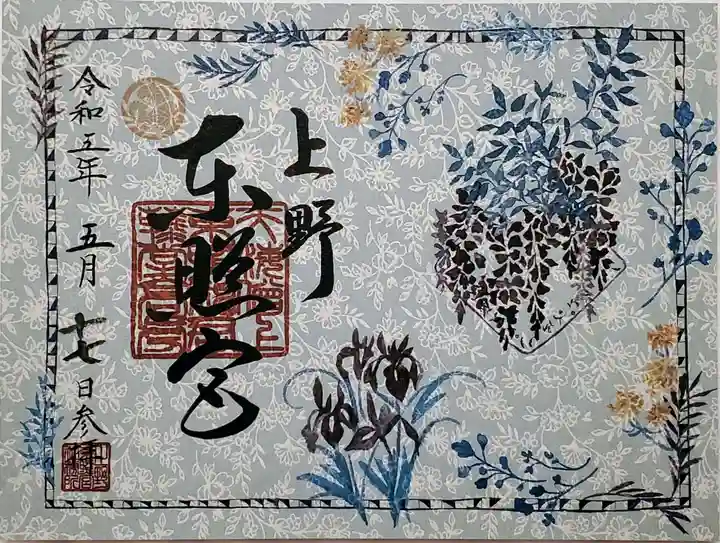 上野
東照宮
令和五年 五月 十七日参拝